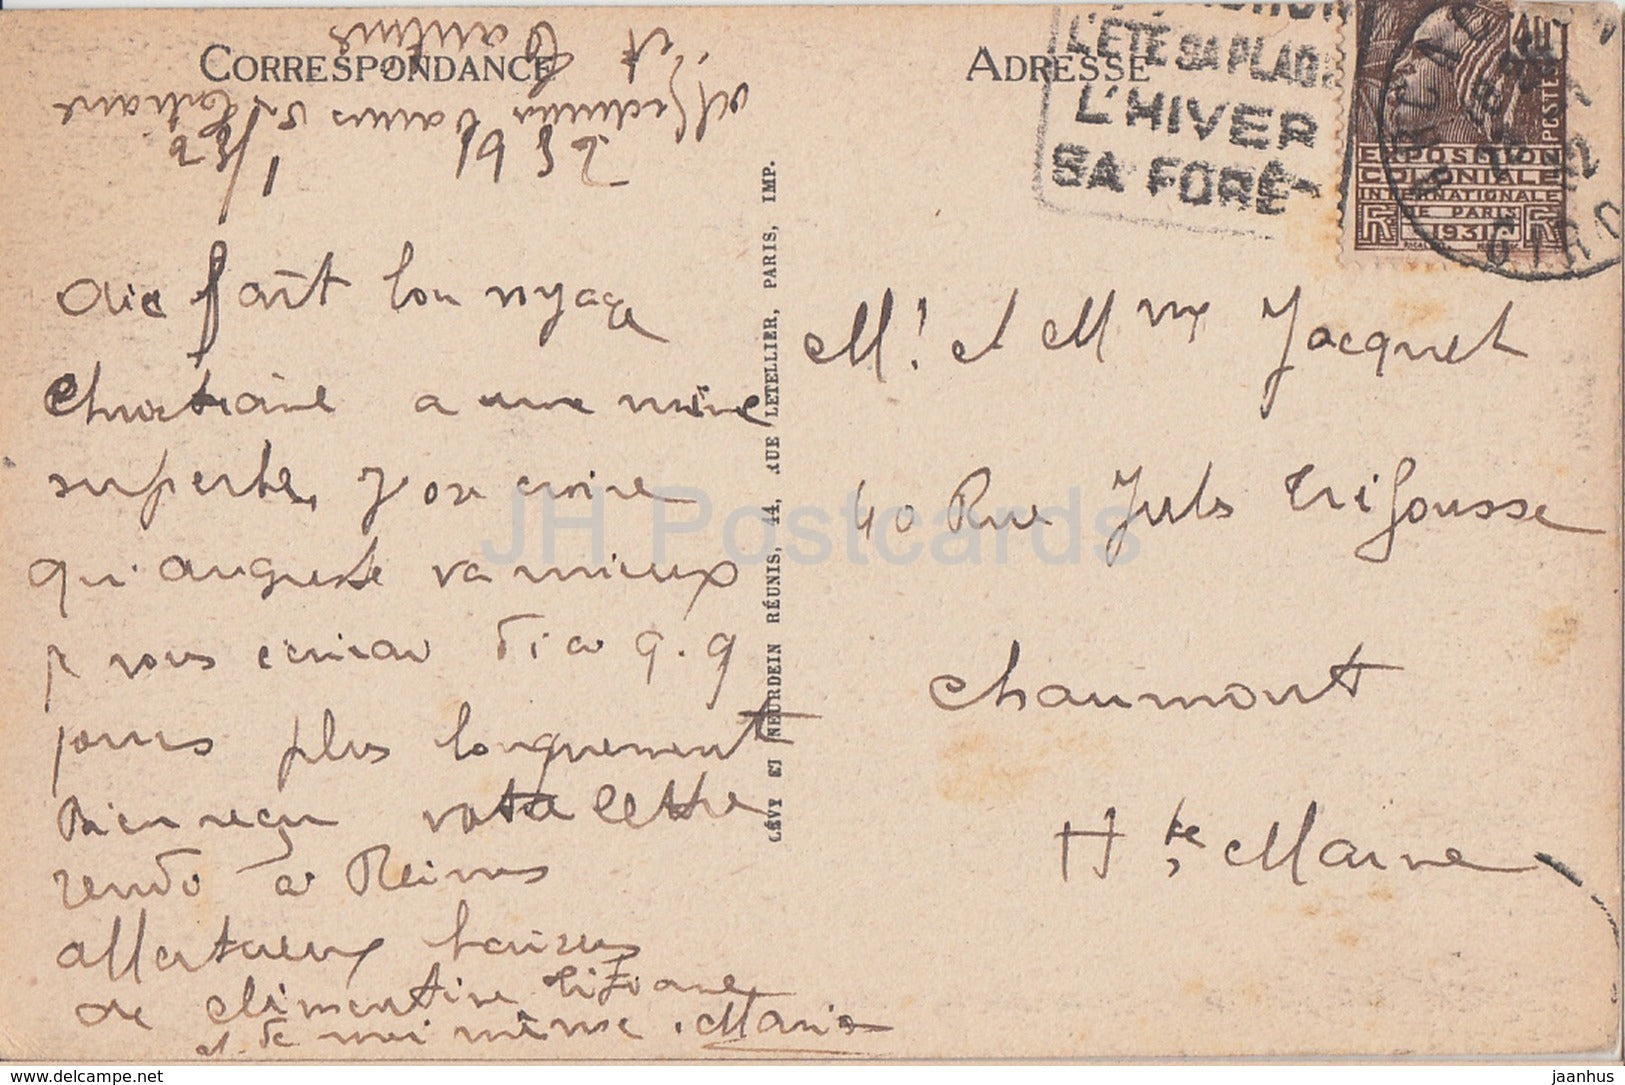 CORRESPONDANCE
ADRESSE
L'ÉTÉ SA PLAGE
L'HIVER
SA FORÊT
40
POSTES
EXPOSITION
COLONIALE
INTERNATIONALE
DE PARIS
1931
RF RF
fait bon voyage
Christiane a une mine
superbe, j'ose croire
qu'auguste va mieux
je vous écrirai d'ici q.q
jours plus longuement
Bien reçu votre lettre
rendu à Reims
affectueux baisers
de Clémentine
et de moi même. Maria
M. et Mme Jacquet
40 Rue Jules Trefousse
Chaumont
Hte Marne
LÉVY ET NEURDEIN RÉUNIS, 44, RUE LETELLIER, PARIS, IMP.
JH Postcards
www.delcampe.net
jaanhus